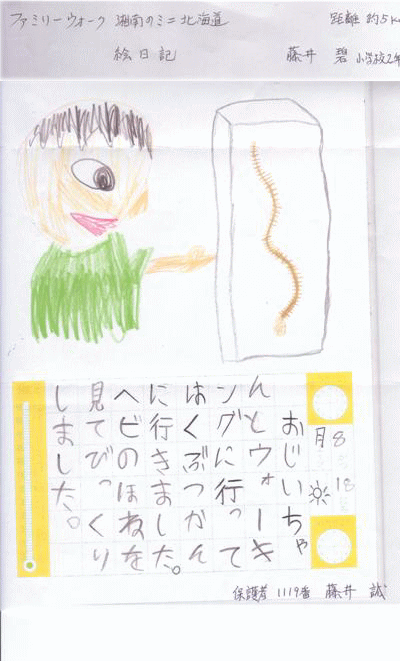 ファミリーウォーク 湘南のミニ北海道
距離 約5K
絵日記
藤井 碧 小学校2年
8月18
おじいちゃ
んとウォーキ
ングに行って
はくぶつかん
に行きました。
ヘビのほねを
見てびっくり
しました。
保護者 1119番 藤井 誠